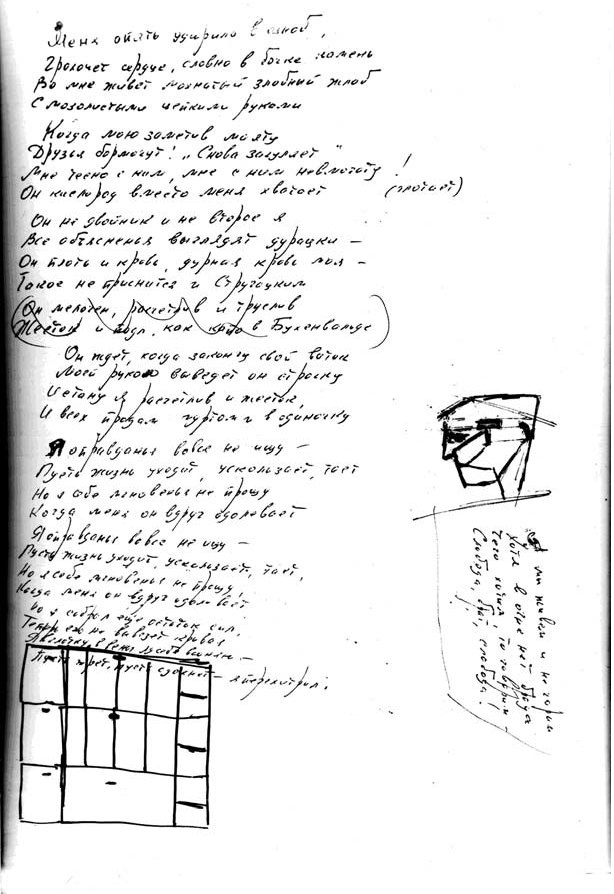 Меня опять ударило в озноб,
Грохочет сердце, словно в бочке камень
Во мне живет мохнатый злобный жлоб
С мозолистыми цепкими руками
Когда мою заметив маяту
Друзья бормочут: „Снова загуляет"
Мне тесно с ним, мне с ним невмоготу!
Он кислород вместо меня хватает (глотает)
Он не двойник и не второе я
Все объясненья выглядят дурацки —
Он плоть и кровь, дурная кровь моя —
Такое не приснится и Стругацким
(Он мелочен, расчетлив и труслив
Жесток и подл, как в Бухенвальде)
Он ждет, когда закончу свой виток
Моей рукою выведет он строчку
И стану я расчетлив и жесток
И всех продам гуртом и в одиночку
Я оправданья вовсе не ищу —
Пусть жизнь уходит, ускользает, тает
Но я себе мгновенье не прощу
Когда меня он вдруг одолевает
Я оправданья вовсе не ищу —
Пусть жизнь уходит, ускользает, тает,
Но я себе мгновенье не прощу,
Когда меня он вдруг одолевает
Но я собрал ещё остаток сил,
Теперь его не вывезет кривая
Я в глотку, в вены яд себе вгоняю —
Пусть жрет, пусть сдохнет — я перехитрил!
А мы живем и не горим
Хотя в огне нет брода
Чего хотим, то говорим —
Свобода, брат, свобода!